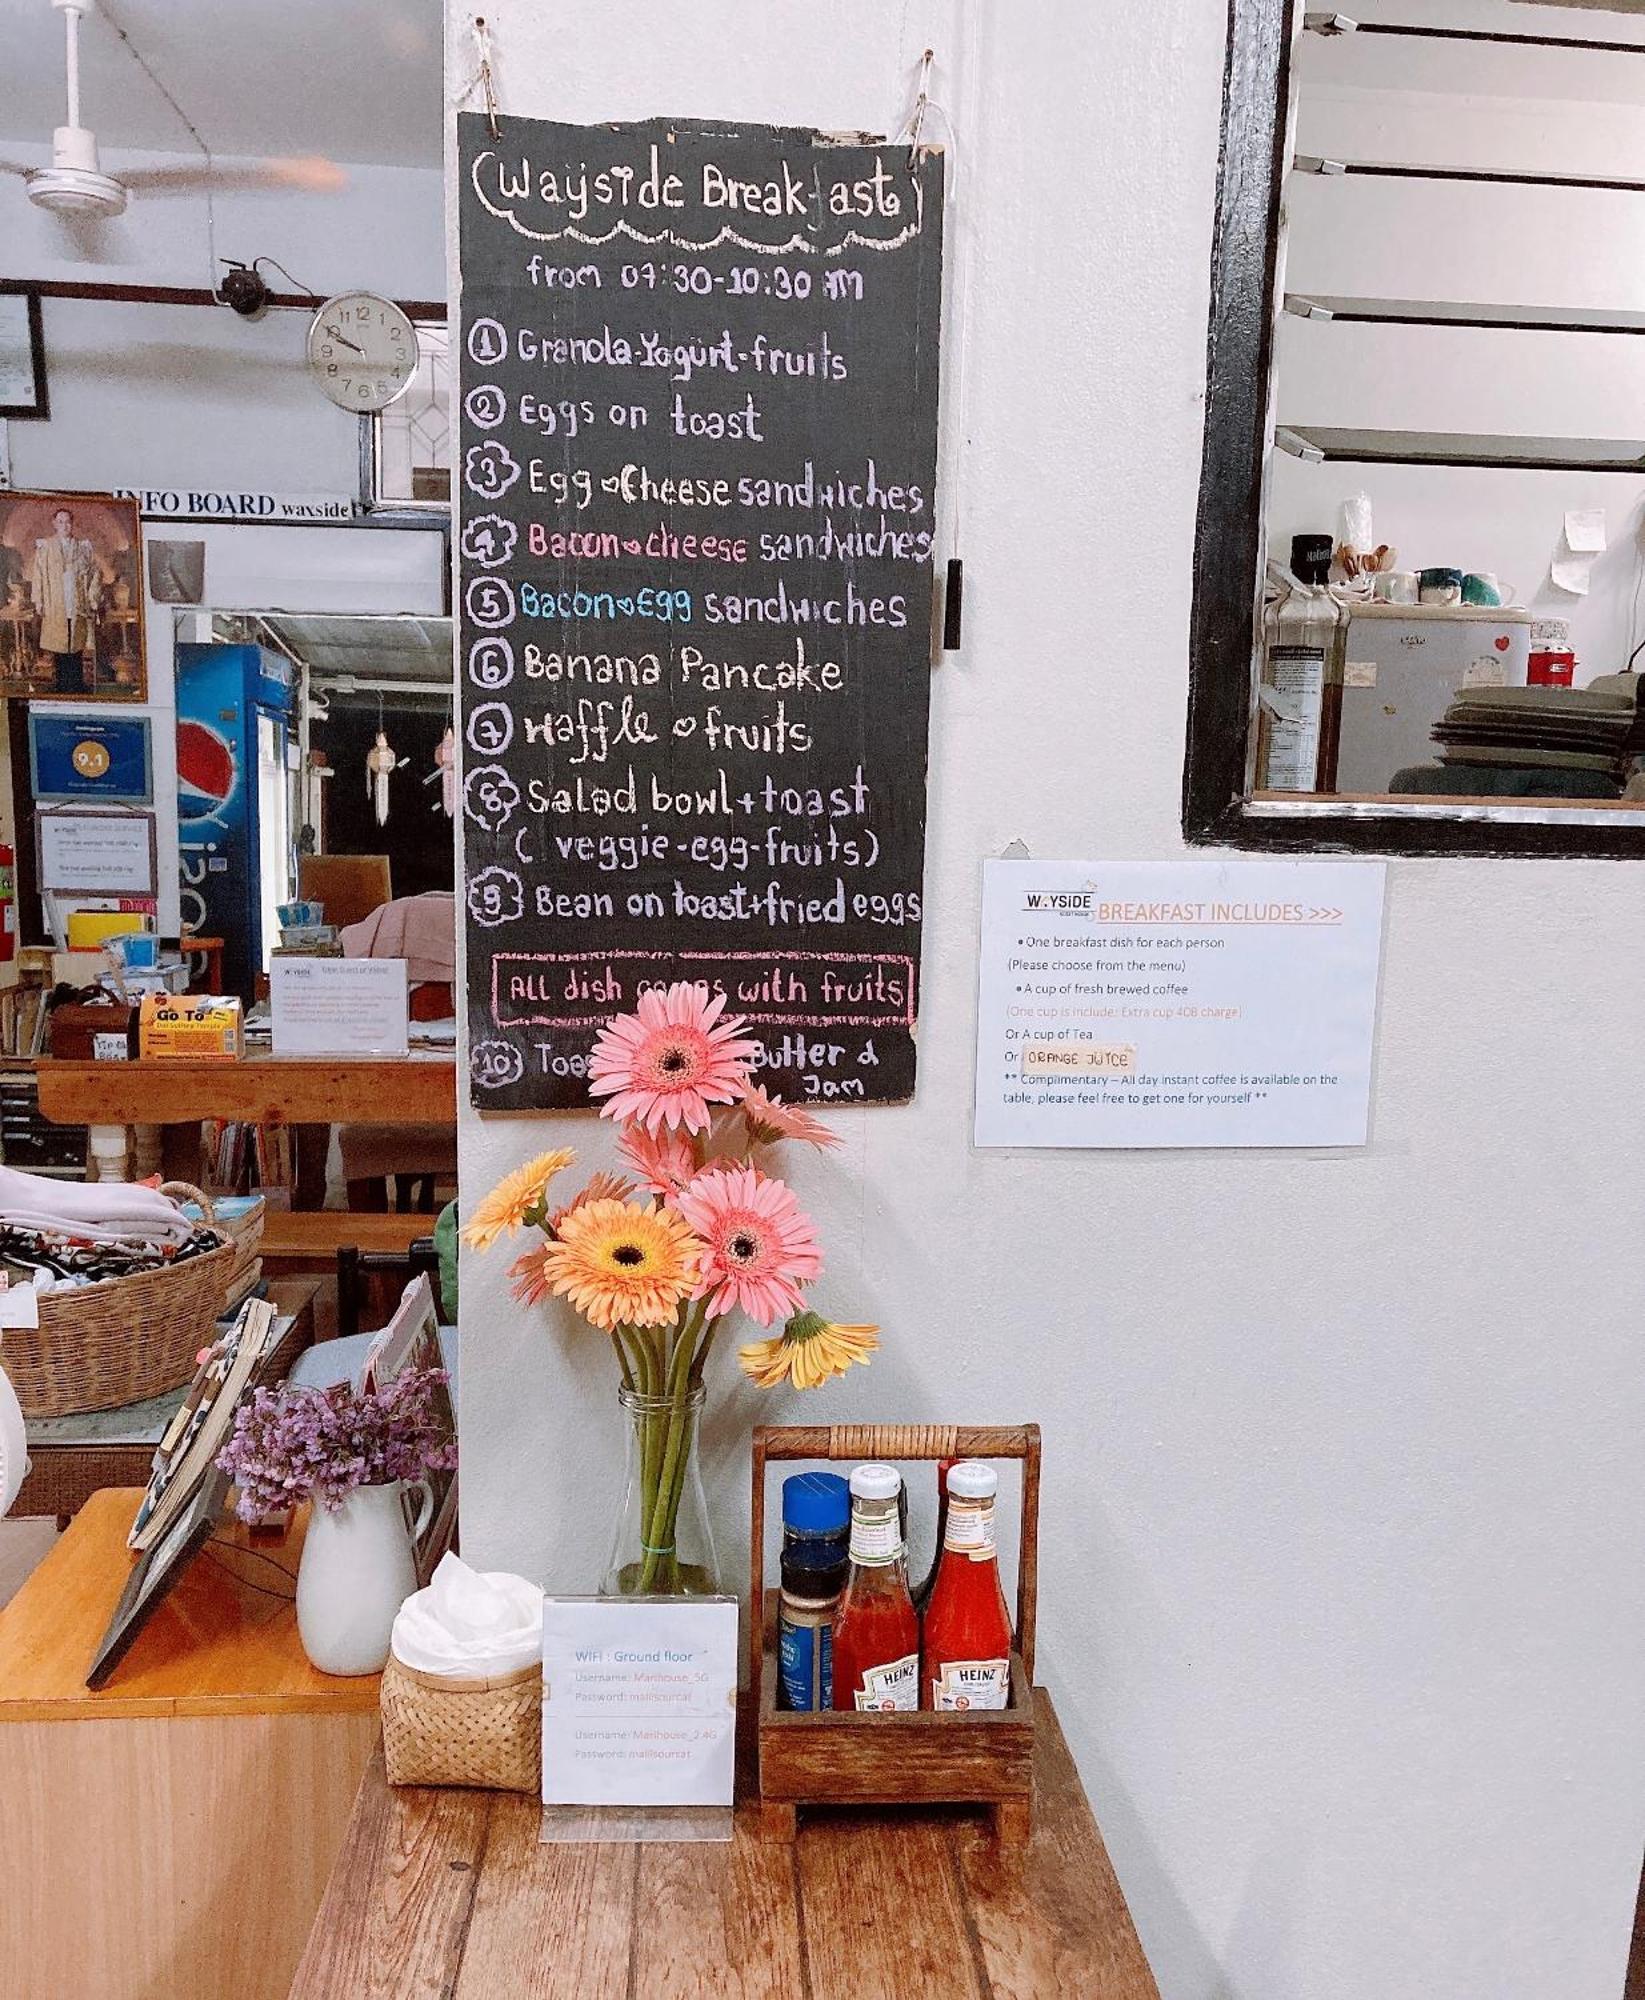 (Wayside Breakfast)
from 07:30-10:30 AM
1 Granola-Yogurt-fruits
2 Eggs on toast
3 Egg Cheese sandwiches
4 Bacon cheese sandwiches
5 Bacon Egg sandwiches
6 Banana Pancake
7 Waffle fruits
8 Salad bowl + toast
( veggie-egg-fruits)
9 Bean on toast + fried eggs
ALL dish comes with fruits
10 Butter &
Jam
INFO BOARD wayside
9.1
Go To
WAYSIDE
BREAKFAST INCLUDES >>>
• One breakfast dish for each person
(Please choose from the menu)
• A cup of fresh brewed coffee
(One cup is include: Extra cup 40B charge)
Or A cup of Tea
Or ORANGE JUICE
** Complimentary – All day instant coffee is available on the
table, please feel free to get one for yourself **
WIFI : Ground floor
Username: Manhouse_5G
Password: mallisourcat
Username: Manhouse_2.4G
Password: mallisourcat
HEINZ
HEINZ
11 12 1
10 2
9 3
8 4
7 6 5